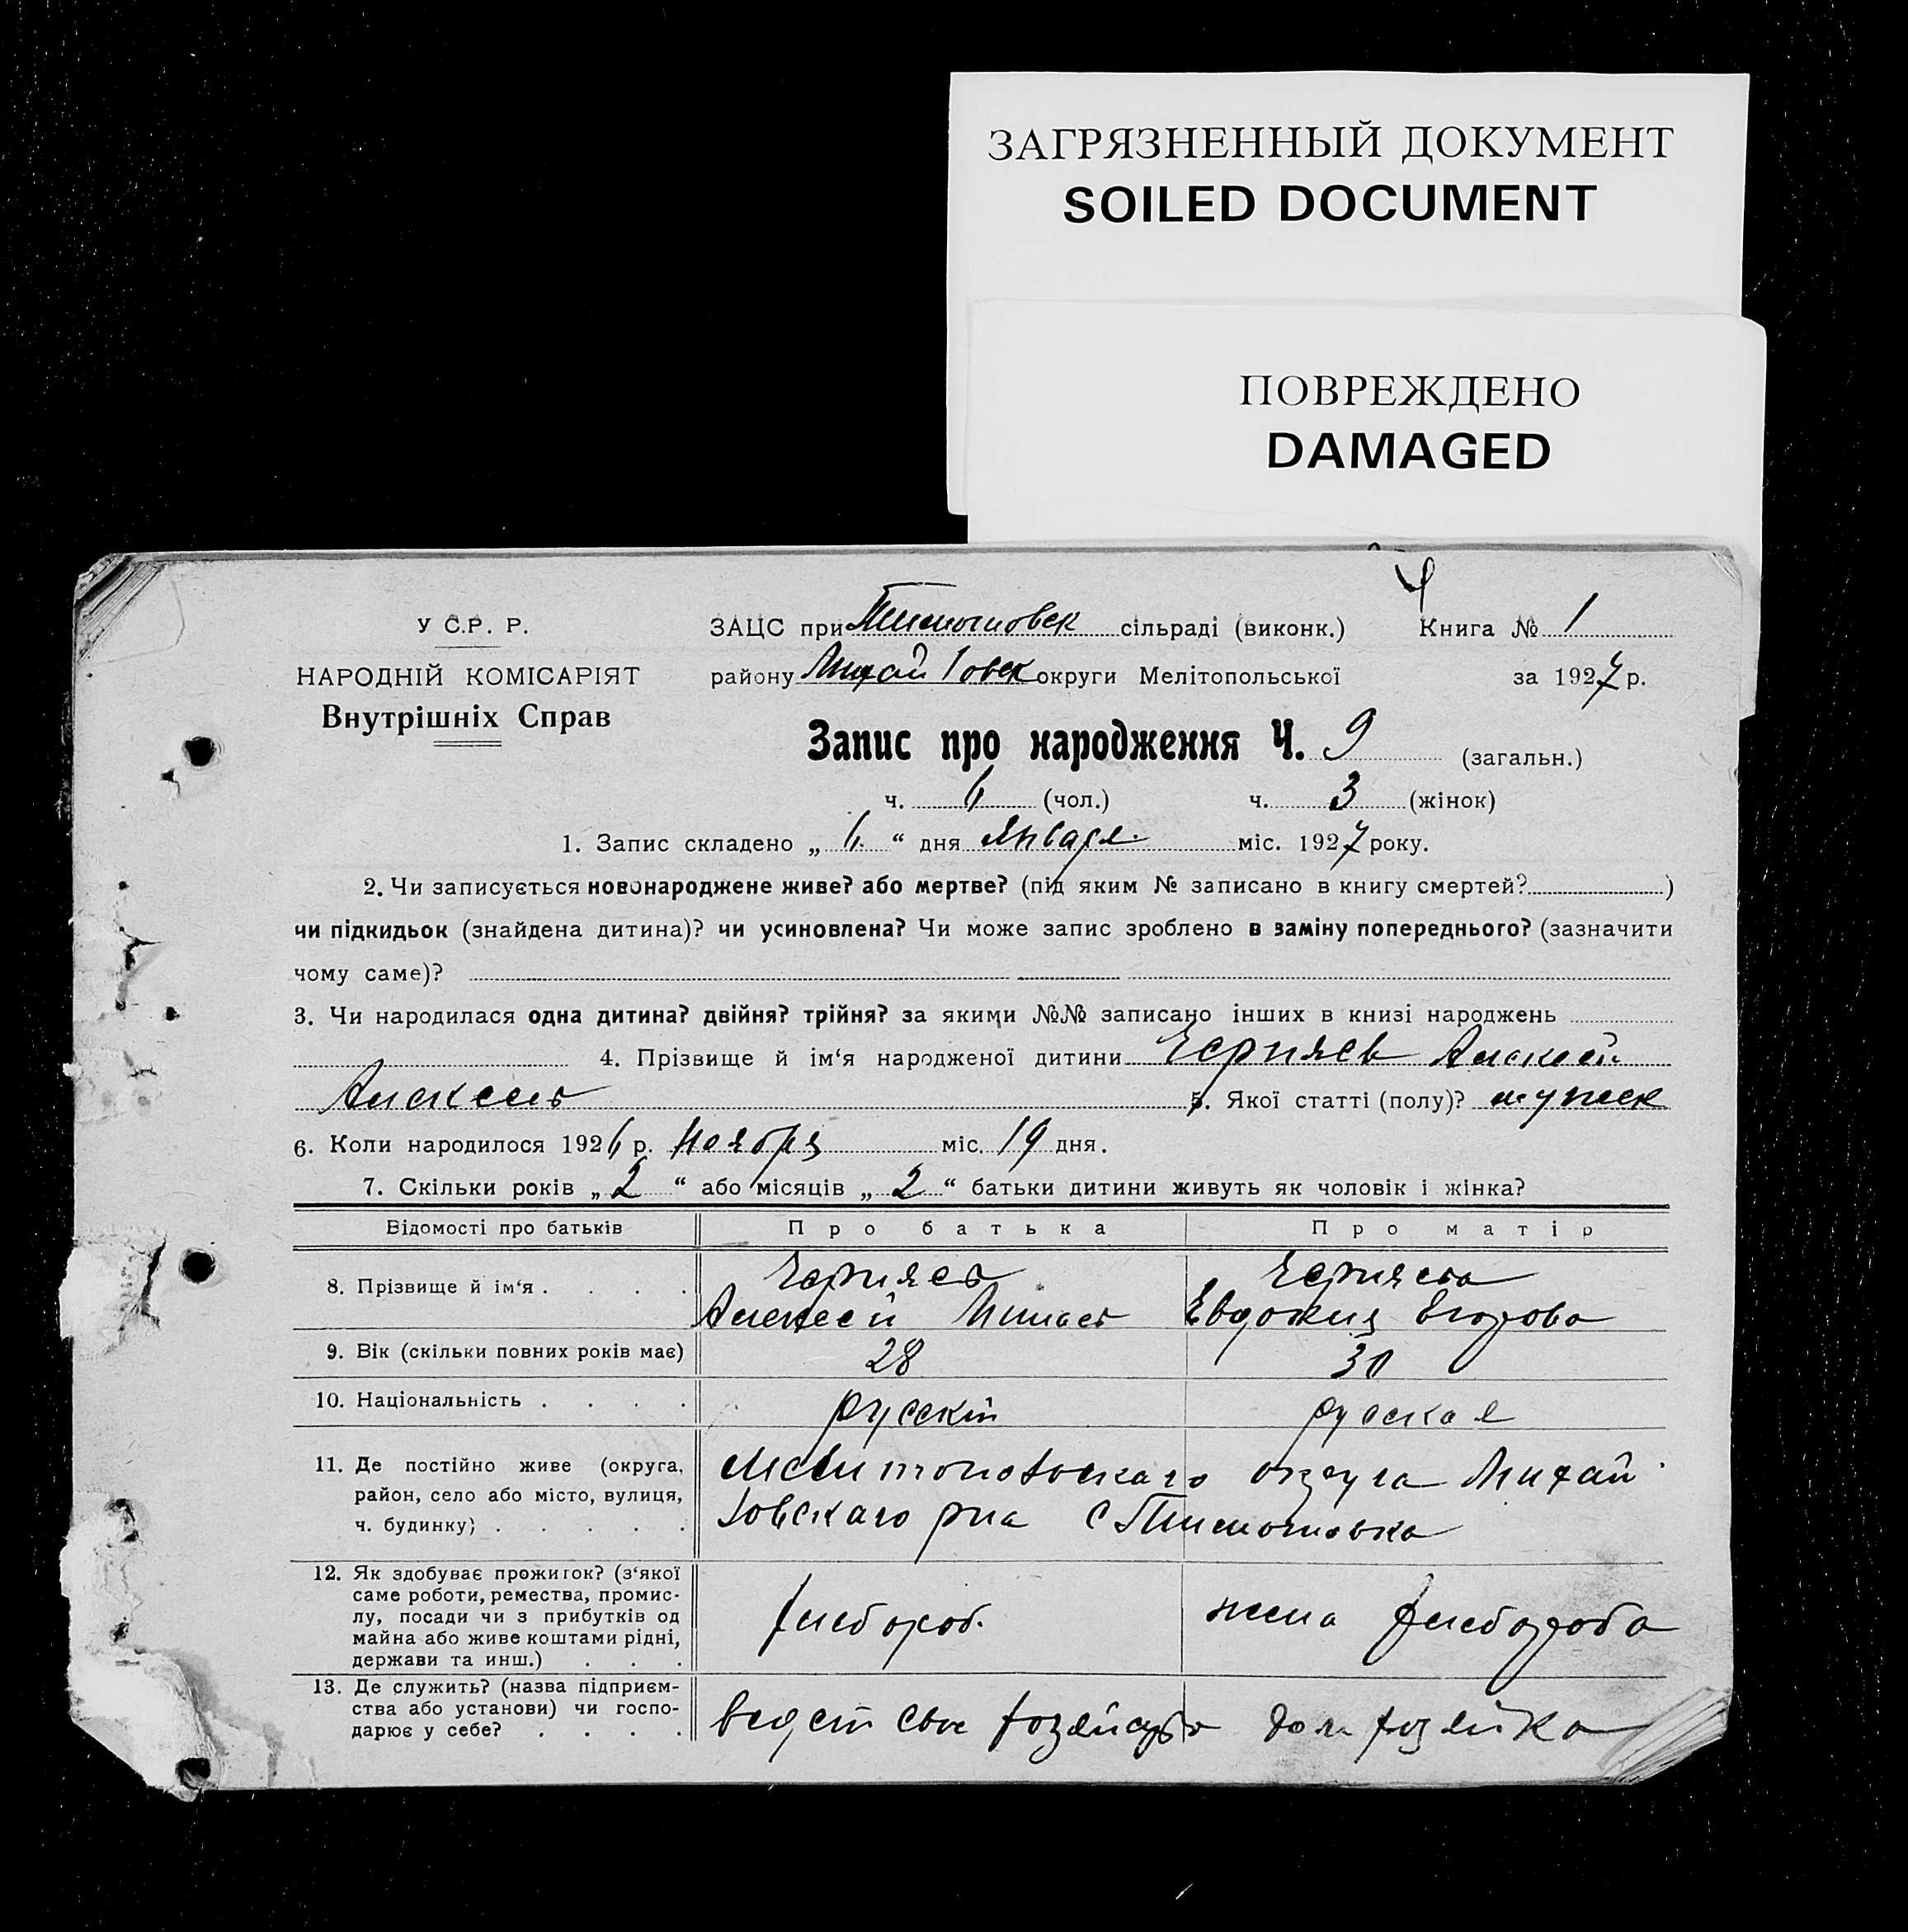 ЗАГРЯЗНЕННЫЙ ДОКУМЕНТ
SOILED DOCUMENT
ПОВРЕЖДЕНО
DAMAGED
У С.Р. Р.
НАРОДНІЙ КОМІСАРІЯТ
Внутрішніх Справ
ЗАЦС при Тимошовск сільраді (виконк.) Книга № 1
району Михайловск округи Мелітопольської за 1927 р.
Запис про народження Ч. 9 (загальн.)
ч. 6 (чол.) ч. 3 (жінок)
1. Запис складено „ 6 “ дня Января міс. 1927 року.
2. Чи записується новонароджене живе? або мертве? (під яким № записано в книгу смертей? )
чи підкидьок (знайдена дитина)? чи усиновлена? Чи може запис зроблено в заміну попереднього? (зазначити
чому саме)?
3. Чи народилася одна дитина? двійня? трійня? за якими №№ записано інших в книзі народжень
4. Прізвище й ім‘я народженої дитини Черняев Алексей
Алексеев 5. Якої статті (полу)? мужск
6. Коли народилося 1926 р. Ноября міс. 19 дня.
7. Скільки років „ 2 “ або місяців „ 2 “ батьки дитини живуть як чоловік і жінка?
Відомості про батьків Про батька Про матір
8. Прізвище й ім‘я . . . . Черняев Черняева
Алексей Минаев Евдокия Егорова
9. Вік (скільки повних років має) 28 30
10. Національність . . . . русскій русская
11. Де постійно живе (округа, район, село або місто, вулиця, ч. будинку) . . . . .
Мелитопольскаго округа Михай
ловскаго рна с Тимошовка
12. Як здобуває прожиток? (з‘якої
саме роботи, ремества, промис-
лу, посади чи з прибутків од
майна або живе коштами рідні,
держави та инш.) . . .
хлебороб. жена хлебороба
13. Де служить? (назва підприєм-
ства або установи) чи госпо-
дарює у себе? . . . .
ведет свое хозяйство дом хозяйка